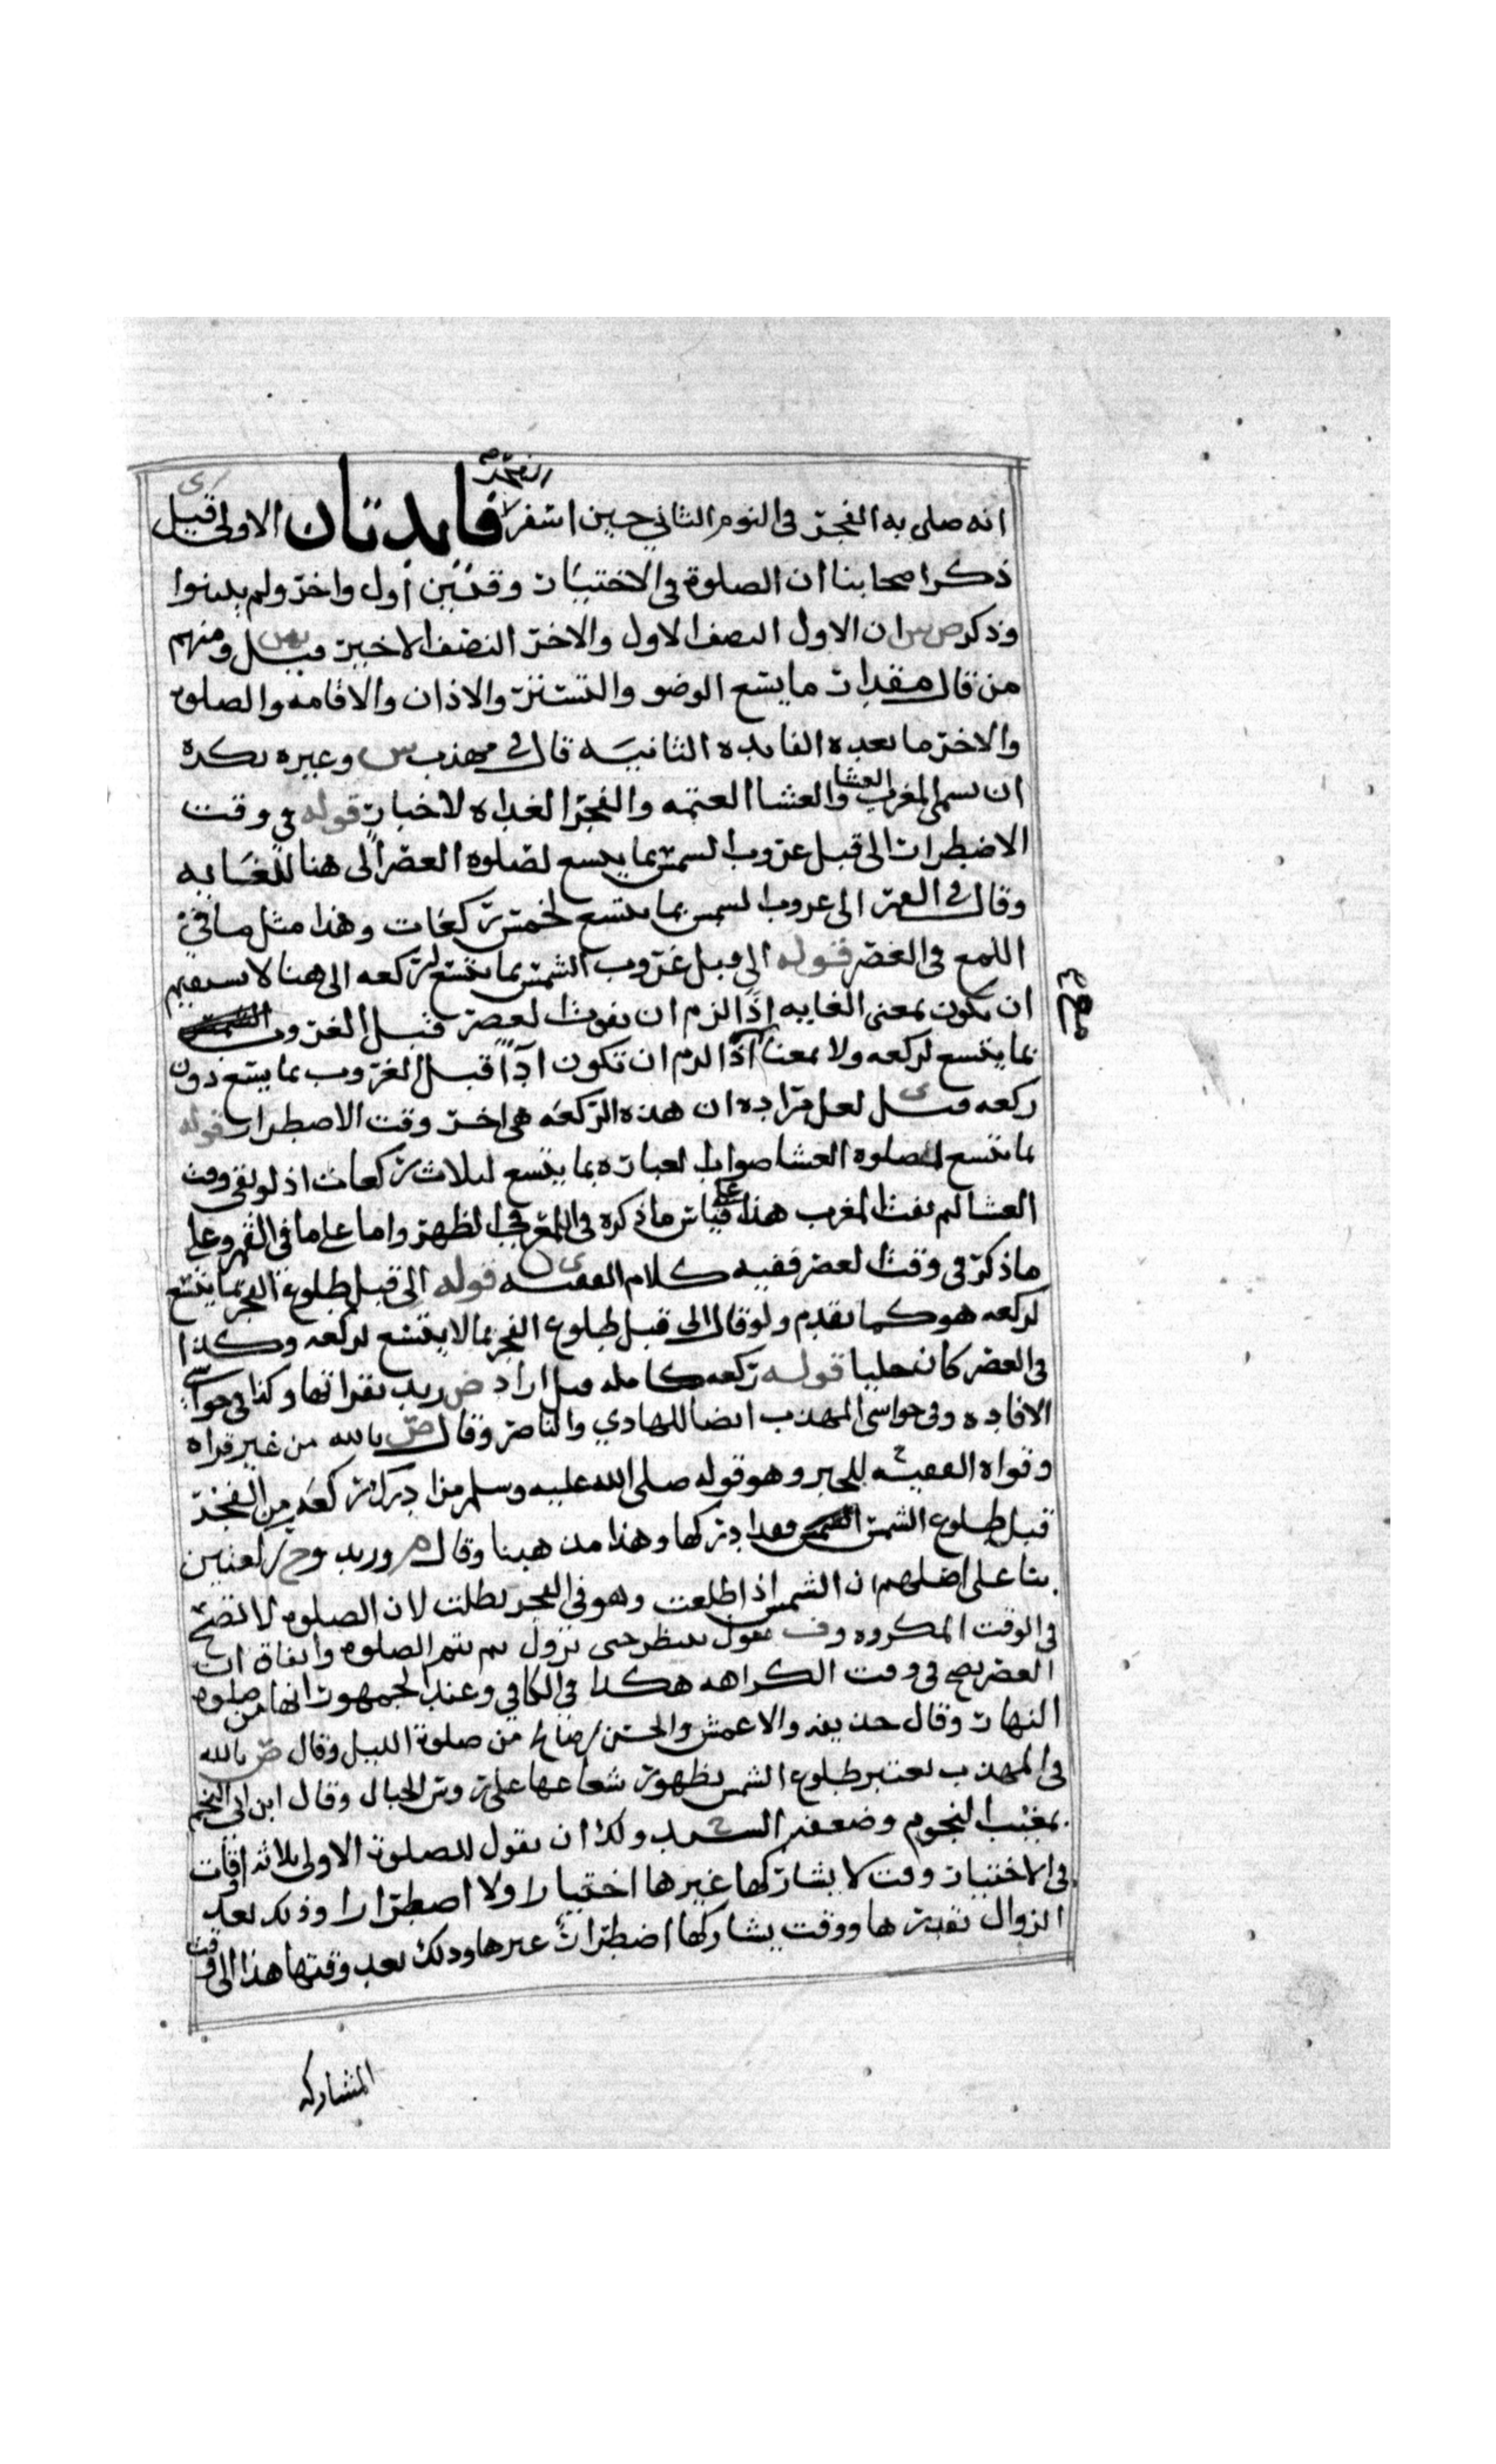 انه صلى به الفجر فى اليوم الثاني حين اسفر فايدتان الاولى قيل
ذكر اصحابنا ان الصلوة فى الاختيار وقتين اول واخر ولم يبينوا
وذكر ص س ان الاول النصف الاول والاخر النصف الاخير قيل ومنهم
من قال مقدار ما يتسع الوضو والتستر والاذان والاقامه والصلوة
والاخر ما بعده الفايده الثانيه قال فى مهذب س وغيره يكره
ان يسمى المغرب العشا والعشا العتمه والفجر الغداه لاخبار قوله فى وقت
الاضطرار الى قبل غروب الشمس بما يسع لصلوه العصر الى هنا للغايه
وقال فى الى غروب الشمس بما يتسع لخمس ركعات وهذا مثل ما في
اللمع فى العصر قوله الى قبل غروب الشمس بما يتسع لركعه الى هنا لا يستقيم
ان يكون بمعنى الغايه اذا لزم ان يفوت العصر قبل الغروب
بما يتسع لركعه ولا بمعنا اذا لزم ان تكون اداً قبل الغروب بما يتسع دون
ركعه قيل لعل مراده ان هذه الركعه هى اخر وقت الاضطرار قوله
بما يتسع لصلوه العشا صواب العبارة بما يتسع لثلاث ركعات اذ لو بقى وقت
العشا لم يفت المغرب هذا على قياس ما ذكره فى اللمع فى الظهر واما على ما فى وعلى
ما ذكر فى وقت العصر ففيه كلام الفقيه ى قوله الى قبل طلوع الفجر بما يتسع
لركعه هو كما تقدم ولو قال الى قبل طلوع الفجر بما لا يتسع لركعه وكذا
فى العصر كان جليا قوله ركعه كامله قيل اراد ض زيد بقراتها وكذا فى حواشى
الافاده وفى حواشى المهذب ايضا للهادي والناصر وقال ص بالله من غير قراه
وقواه الفقيه ح للخبر وهو قوله صلى الله عليه وسلم من ادرك ركعه من الفجر
قبل طلوع الشمس فقد ادركها وهذا مذهبنا وقال م وزيد وح
بنا على اصلهم ان الشمس اذا طلعت وهو فى الفجر بطلت لان الصلوه لا تصح
فى الوقت المكروه وف يقول ينتظر حتى تزول ثم يتم الصلوه واتفاق ان
العصر يصح فى وقت الكراهه هكذا فى الكافى وعند الجمهور انها من صلوه
النهار وقال حذيفه والاعمش والحسن بن صالح من صلوة الليل وقال ص بالله
فى المهذب يعتبر طلوع الشمس بظهور شعاعها على روس الجبال وقال ابن ابى النجم
بمغيب النجوم وضعفه السيد ح ولك ان تقول للصلوة الاولى ثلاثه اوقات
فى الاختيار وقت لا يشاركها غيرها اختيارا ولا اضطرارا وذلك بعد
الزوال بقدرها ووقت يشاركها اضطرار غيرها وذلك بعد وقتها هذا الى وقت
المشاركه